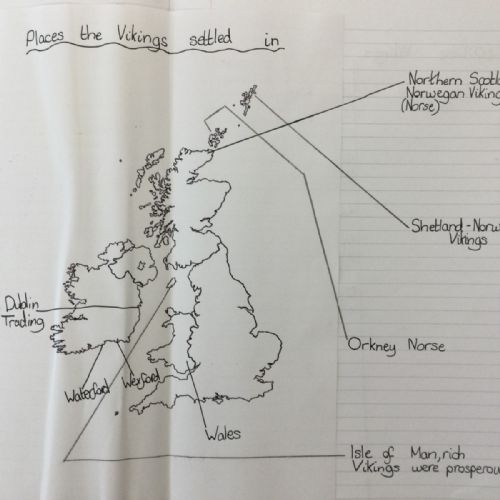 Places the Vikings settled in
Northern
Norwegian
(Norse)
Shetland-
Vikings
Dublin
Trading
Orkney Norse
Waterford
Wexford
Wales
Isle of Man, rich
Vikings were